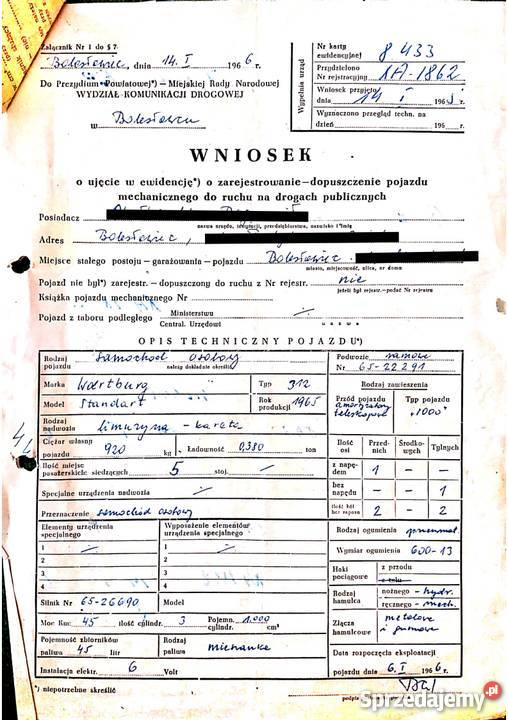 Załącznik Nr 1 do § 7
Bolesławiec, dnia 14. I 1966 r.
Do Prezydium Powiatowej*) – Miejskiej Rady Narodowej
WYDZIAŁ KOMUNIKACJI DROGOWEJ
w Bolesławcu
Wypełnia urząd
Nr karty ewidencyjnej 8433
Przydzielono Nr rejestracyjny IA-1862
Wniosek przyjęto dnia 14 I 196 r.
Wyznaczono przegląd techn. na dzień 196 r.
WNIOSEK
o ujęcie w ewidencję*) o zarejestrowanie–dopuszczenie pojazdu
mechanicznego do ruchu na drogach publicznych
Posiadacz
nazwa urzędu, instytucji, przedsiębiorstwa, nazwisko i imię
Adres Bolesławiec,
Miejsce stałego postoju – garażowania – pojazdu Bolesławiec
miasto, miejscowość, ulica, nr domu
Pojazd nie był*) zarejestr. – dopuszczony do ruchu z Nr rejestr. nie
jeżeli był rejestr.–podać Nr rejestru
Książka pojazdu mechanicznego Nr
Pojazd z taboru podległego Ministerstwu
Central. Urzędowi
nazwa
OPIS TECHNICZNY POJAZDU*)
Rodzaj pojazdu samochód osobowy
należy dokładnie określić
Podwozie ramowe
Nr 65-22291
Marka Wartburg Typ 312
Model Standart Rok produkcji 1965
Rodzaj nadwozia limuzyna - kareta
Rodzaj zawieszenia
Przód pojazdu amortyzatory teleskopowe
Typ pojazdu "1000"
Ciężar własny pojazdu 920 kg Ładowność 0,380 ton
Ilość osi Przednich Środkowych Tylnych
Ilość miejsc pasażerskie siedzących 5 stoj. –
z napędem 1 – –
Specjalne urządzenia nadwozia
bez napędu – – 1
Przeznaczenie samochód osobowy
Ilość kół bez zapasu 2 – 2
Elementy urządzenia specjalnego
Wyposażenie elementów urządzenia specjalnego
1 1
2 2
3 3
4 4
Rodzaj ogumienia pneumat.
Wymiar ogumienia 600-13
Haki pociągowe z przodu
z tyłu
Rodzaj hamulca nożnego - hydr.
ręcznego - mech.
Silnik Nr 65-26690 Model
Moc Km: 45 ilość cylindr. 3 Pojemn. cylindr. 1.000 cm³
Złącza hamulcowe metalowe i gumowe
Pojemność zbiorników paliwa 45 litr Rodzaj paliwa mieszanka
Data rozpoczęcia eksploatacji
pojazdu 6. I 1966 r.
Instalacja elektr. 6 Volt
*) niepotrzebne skreślić
podpis
Sprzedajemy.pl